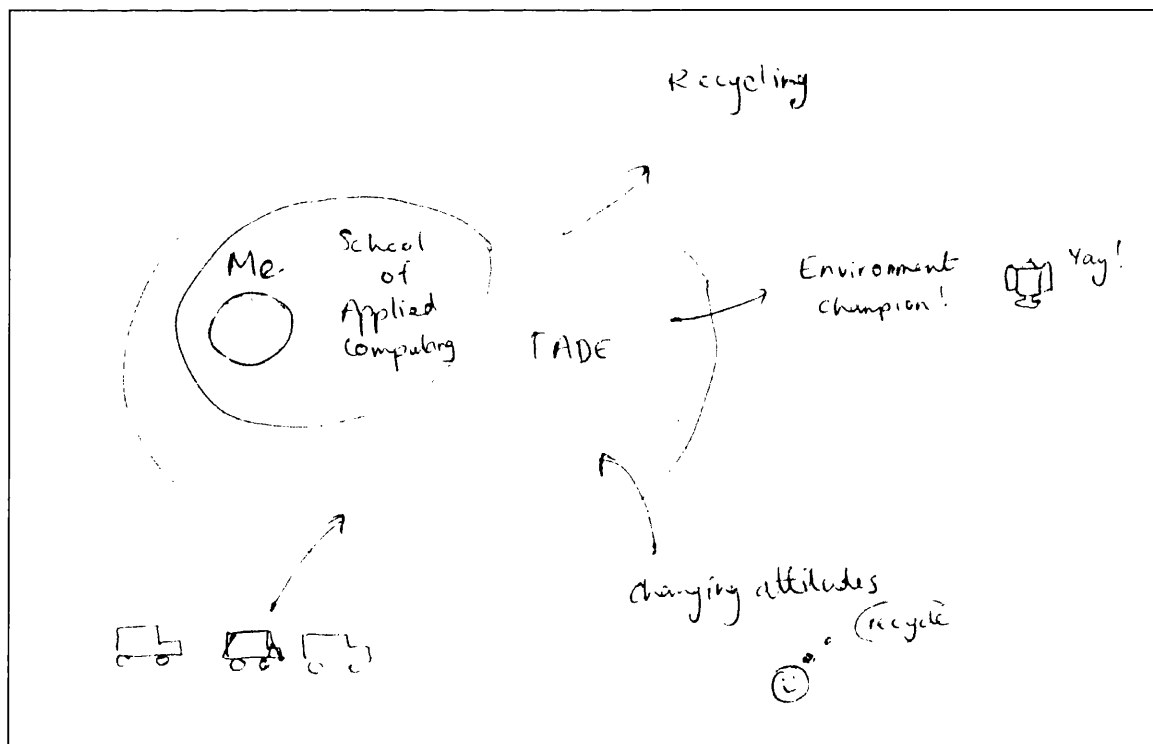 Recycling
Me.
School
of
Applied
Computing
Environment
Champion!
Yay!
TADE
Changing attitudes
recycle